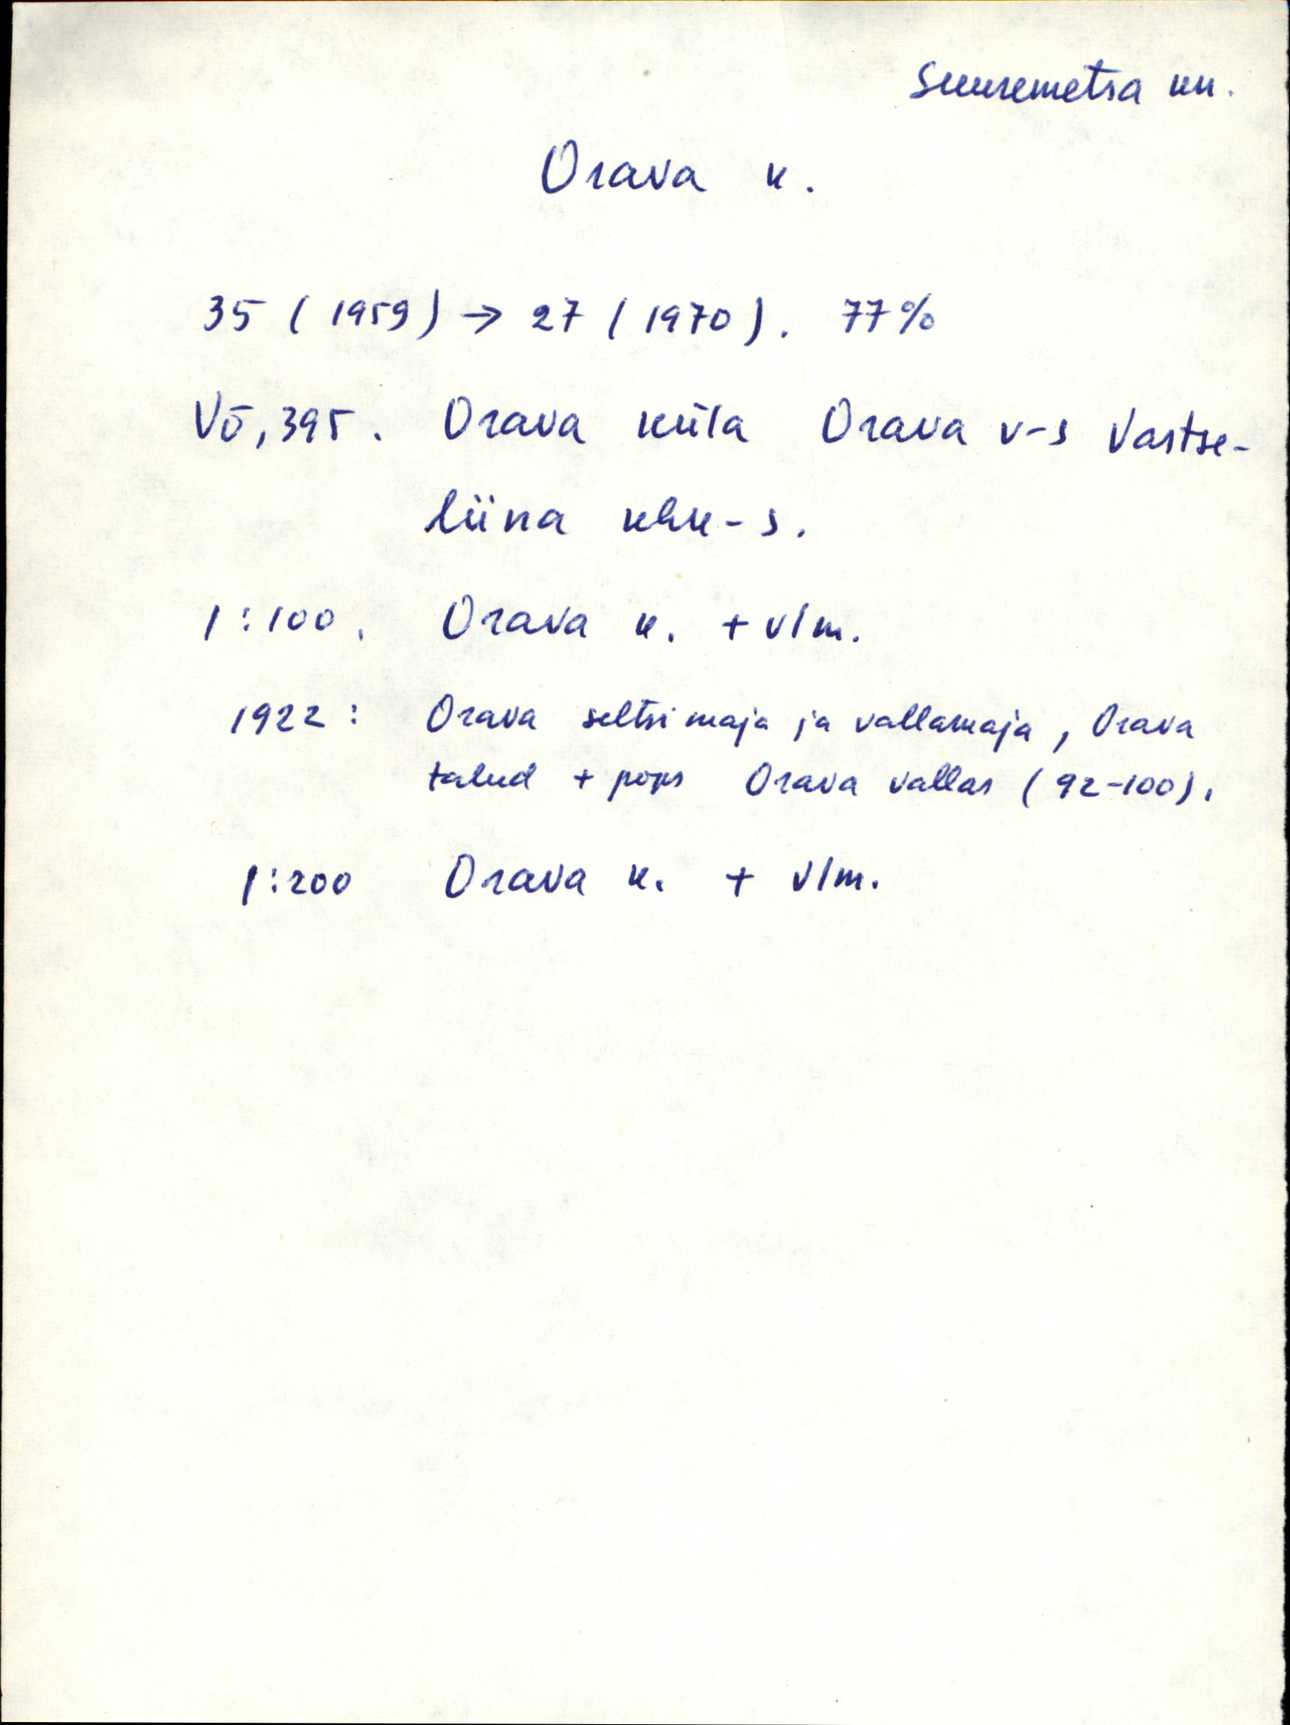 Suuremetsa kn.
Orava k.
35 (1959) → 27 (1970). 77%
Võ, 395. Orava küla Orava v-s Vastse-
liina khk-s.
1:100. Orava k. + vlm.
1922: Orava seltsimaja ja vallamaja, Orava
talud + pops Orava vallas (92-100).
1:200 Orava k. + vlm.